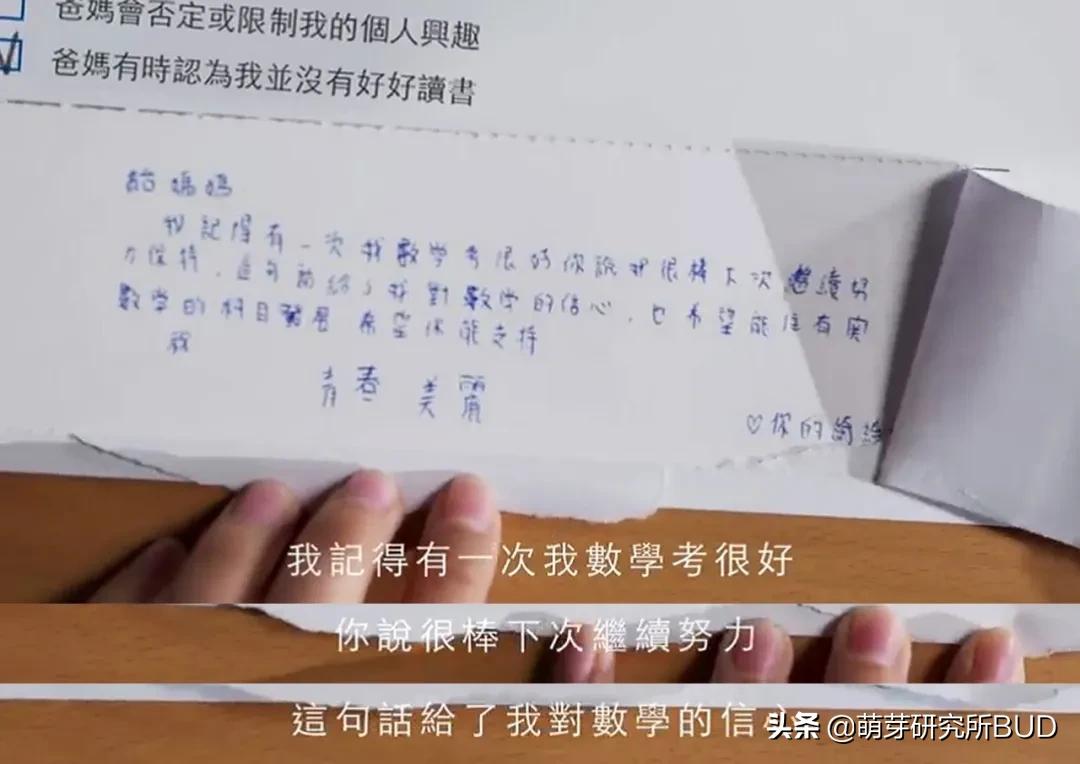 爸媽會否定或限制我的個人興趣
爸媽有時認為我並沒有好好讀書
給媽媽
我記得有一次我數學考很好你說我很棒下次繼續努
力保持，這句話給了我對數學的信心，也希望能往有關
數學的科目發展 希望你能支持
我
青春 美麗
♡你的
我記得有一次我數學考很好
你說很棒下次繼續努力
這句話給了我對數學的信心
头条 @萌芽研究所BUD